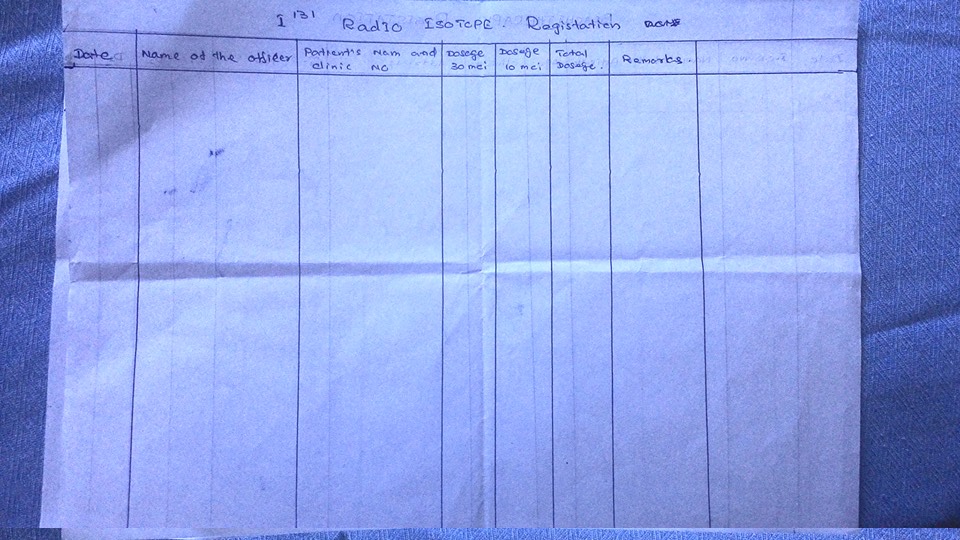 I 131 Radio ISOTOPE. Ragistation
Date
Name of the officer
Patient's Nam and
clinic NO
Dosage
30 mci
Dosage
10 mci
Total
Dosage.
Remarks.